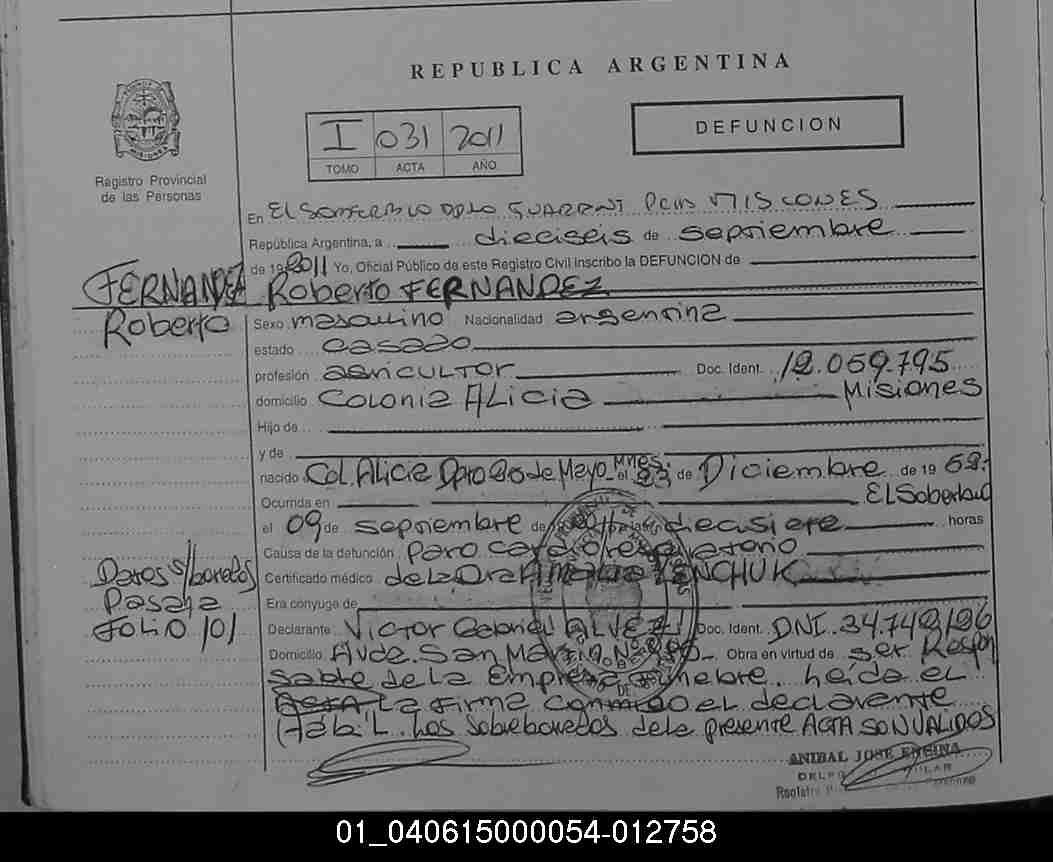 REPUBLICA ARGENTINA
I 031 2011
TOMO ACTA AÑO
DEFUNCION
Registro Provincial
de las Personas
En EL SOBERBIO DPTO GUARANI PCIA MISIONES
República Argentina, a dieciseis de septiembre
de 19 2011 Yo, Oficial Público de este Registro Civil inscribo la DEFUNCION de
FERNANDEZ Roberto FERNANDEZ
Roberto
Sexo masculino Nacionalidad argentina
estado casado
profesión agricultor Doc. Ident. 12.059.795
domicilio Colonia Alicia Misiones
Hijo de
y de
nacido Col. Alicia Dpto 25 de Mayo Mnes. el 23 de Diciembre de 19 62.
Ocurrida en El Soberbio
el 09 de septiembre de a las diecisiete horas
Causa de la defunción paro cardiorespiratorio
Certificado médico de la Dra
Era cónyuge de
Declarante Victor Gabriel Doc. Ident. DNI. 34.742.196
Domicilio Avda. San Martin Nº Obra en virtud de ser Respon
sable de la Empresa Funebre. leída el
Acta La firma conmigo el declarante
Habil. Los sobreborrados de la presente ACTA SON VALIDOS
Datos s/borrados
Pasa a
FOLIO 101
ANIBAL JOSE ENCINA
01_040615000054-012758